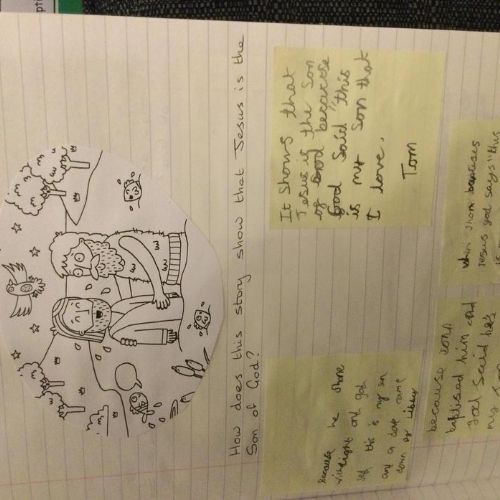 How does this story show that Jesus is the
Son of God?
It shows that
Jesus is the Son
of God because
God Said "this
is my Son that
I love.
Tom
because he shone
light and god
this is my son
and a dove came
down
because John
baptised him and
god Said he's
my
when John baptises
Jesus god says "this
is